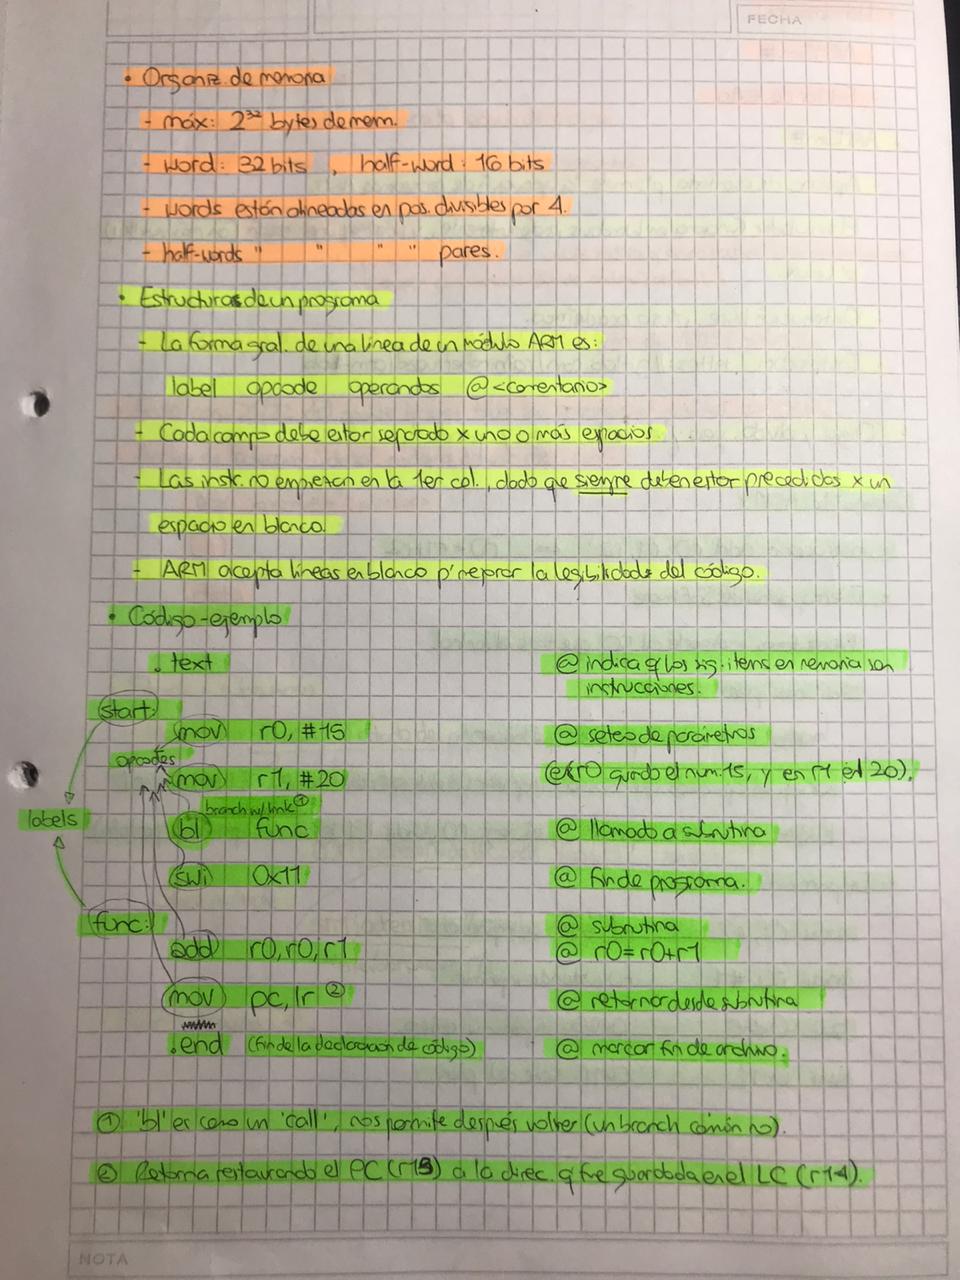 FECHA
• Organiz. de memoria
- máx: 2³² bytes de mem.
- word: 32 bits , half-word: 16 bits
- words están alineadas en pos. divisibles por 4.
- half-words " " " " pares.
• Estructuras de un programa
- La forma gral. de una línea de un módulo ARM es:
label opcode operandos @<comentario>
- Cada campo debe estar separado x uno o más espacios.
- Las instr. no empiezan en la 1er col., dado que siempre deben estar precedidas x un
espacio en blanco.
- ARM acepta líneas en blanco p' mejorar la legibilidad del código.
• Código-ejemplo
.text @ indica q los sig. items en memoria son
instrucciones.
start:
mov r0, #15 @ seteo de parámetros
opcodes
mov r1, #20 (en r0 guardo el num. 15, y en r1 el 20).
branch w/ link ①
labels
bl func @ llamado a subrutina
swi 0x11 @ fin de programa.
func: @ subrutina
add r0, r0, r1 @ r0 = r0 + r1
mov pc, lr ② @ retornar desde subrutina
.end (fin de la declaración de código) @ marcar fin de archivo.
① 'bl' es como un 'call', nos permite después volver (un branch común no).
② Retorna restaurando el PC (r15) a la direc. q fue guardada en el LC (r14).
NOTA